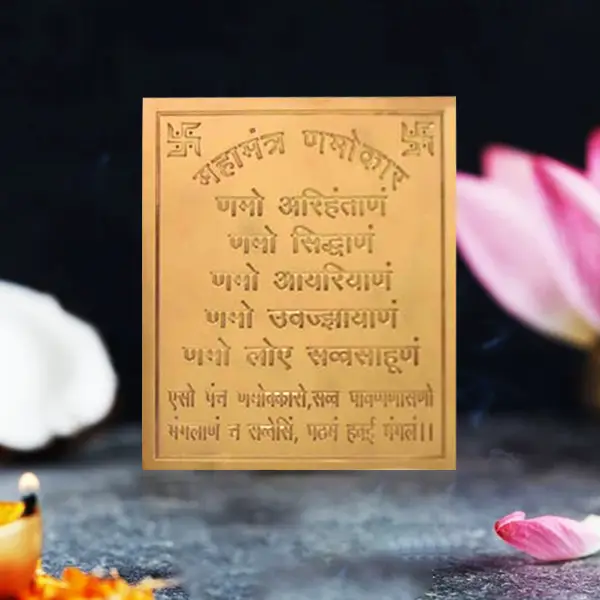 महामंत्र णमोकार
णमो अरिहंताणं
णमो सिद्धाणं
णमो आयरियाणं
णमो उवज्झायाणं
णमो लोए सव्वसाहूणं
एसो पंच णमोक्कारो, सव्व पावप्पणासणो
मंगलाणं च सव्वेसिं, पढमं हवई मंगलं।।